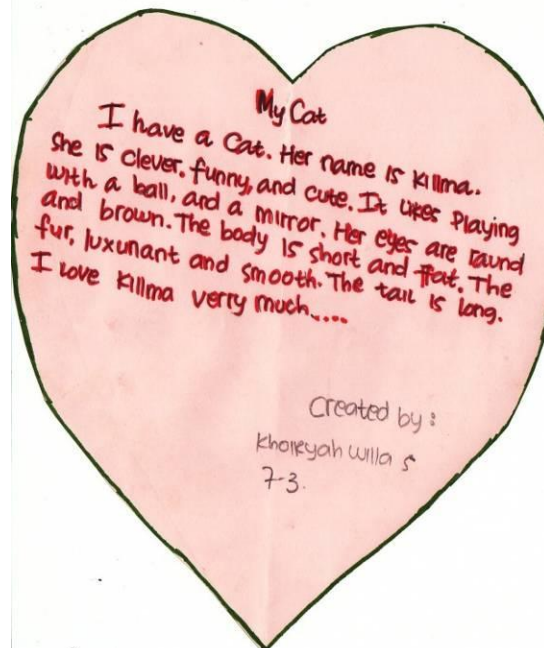 My Cat
I have a Cat. Her name is Killma.
She is clever, funny, and cute. It likes Playing
with a ball, and a mirror. Her eyes are raund
and brown. The body is short and flat. The
fur, luxunant and smooth. The tail is long.
I love Killma verry much.....
Created by :
Khoireyah Willa S
7-3.